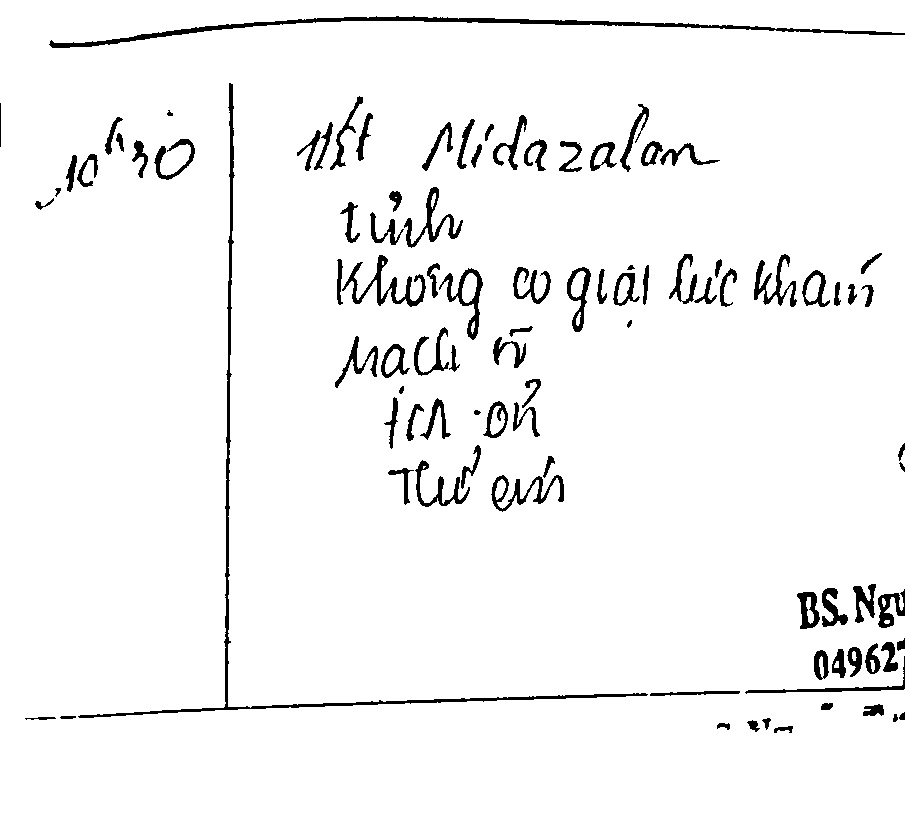 10h30
Hết Midazolam
tỉnh
Không co giật lúc khám
Mạch rõ
Tim
Thở êm
BS. Ngu
04962